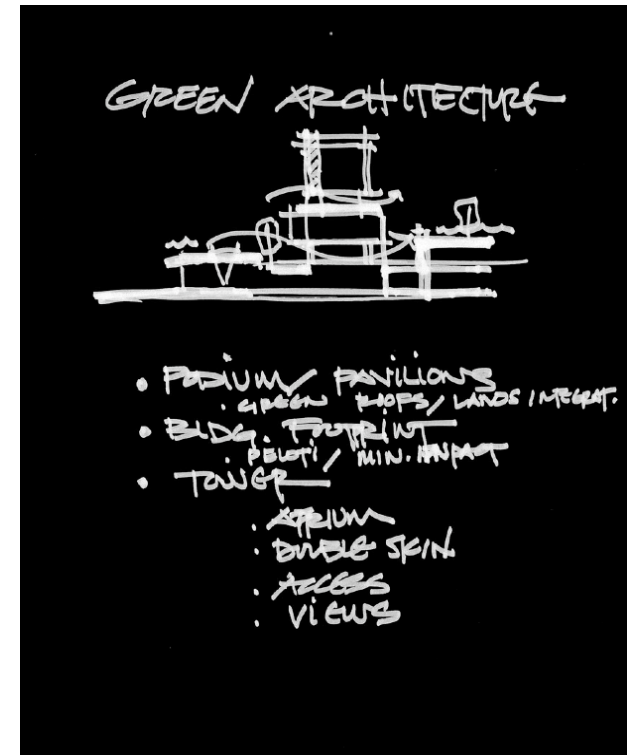 GREEN ARCHITECTURE
• PODIUM/ PAVILIONS
. GREEN ROOFS/ LANDS INTEGRAT.
• BLDG. FOOTPRINT
. PILOTI/ MIN. IMPACT
• TOWER
. ATRIUM
. DOUBLE SKIN
. ACCESS
. VIEWS